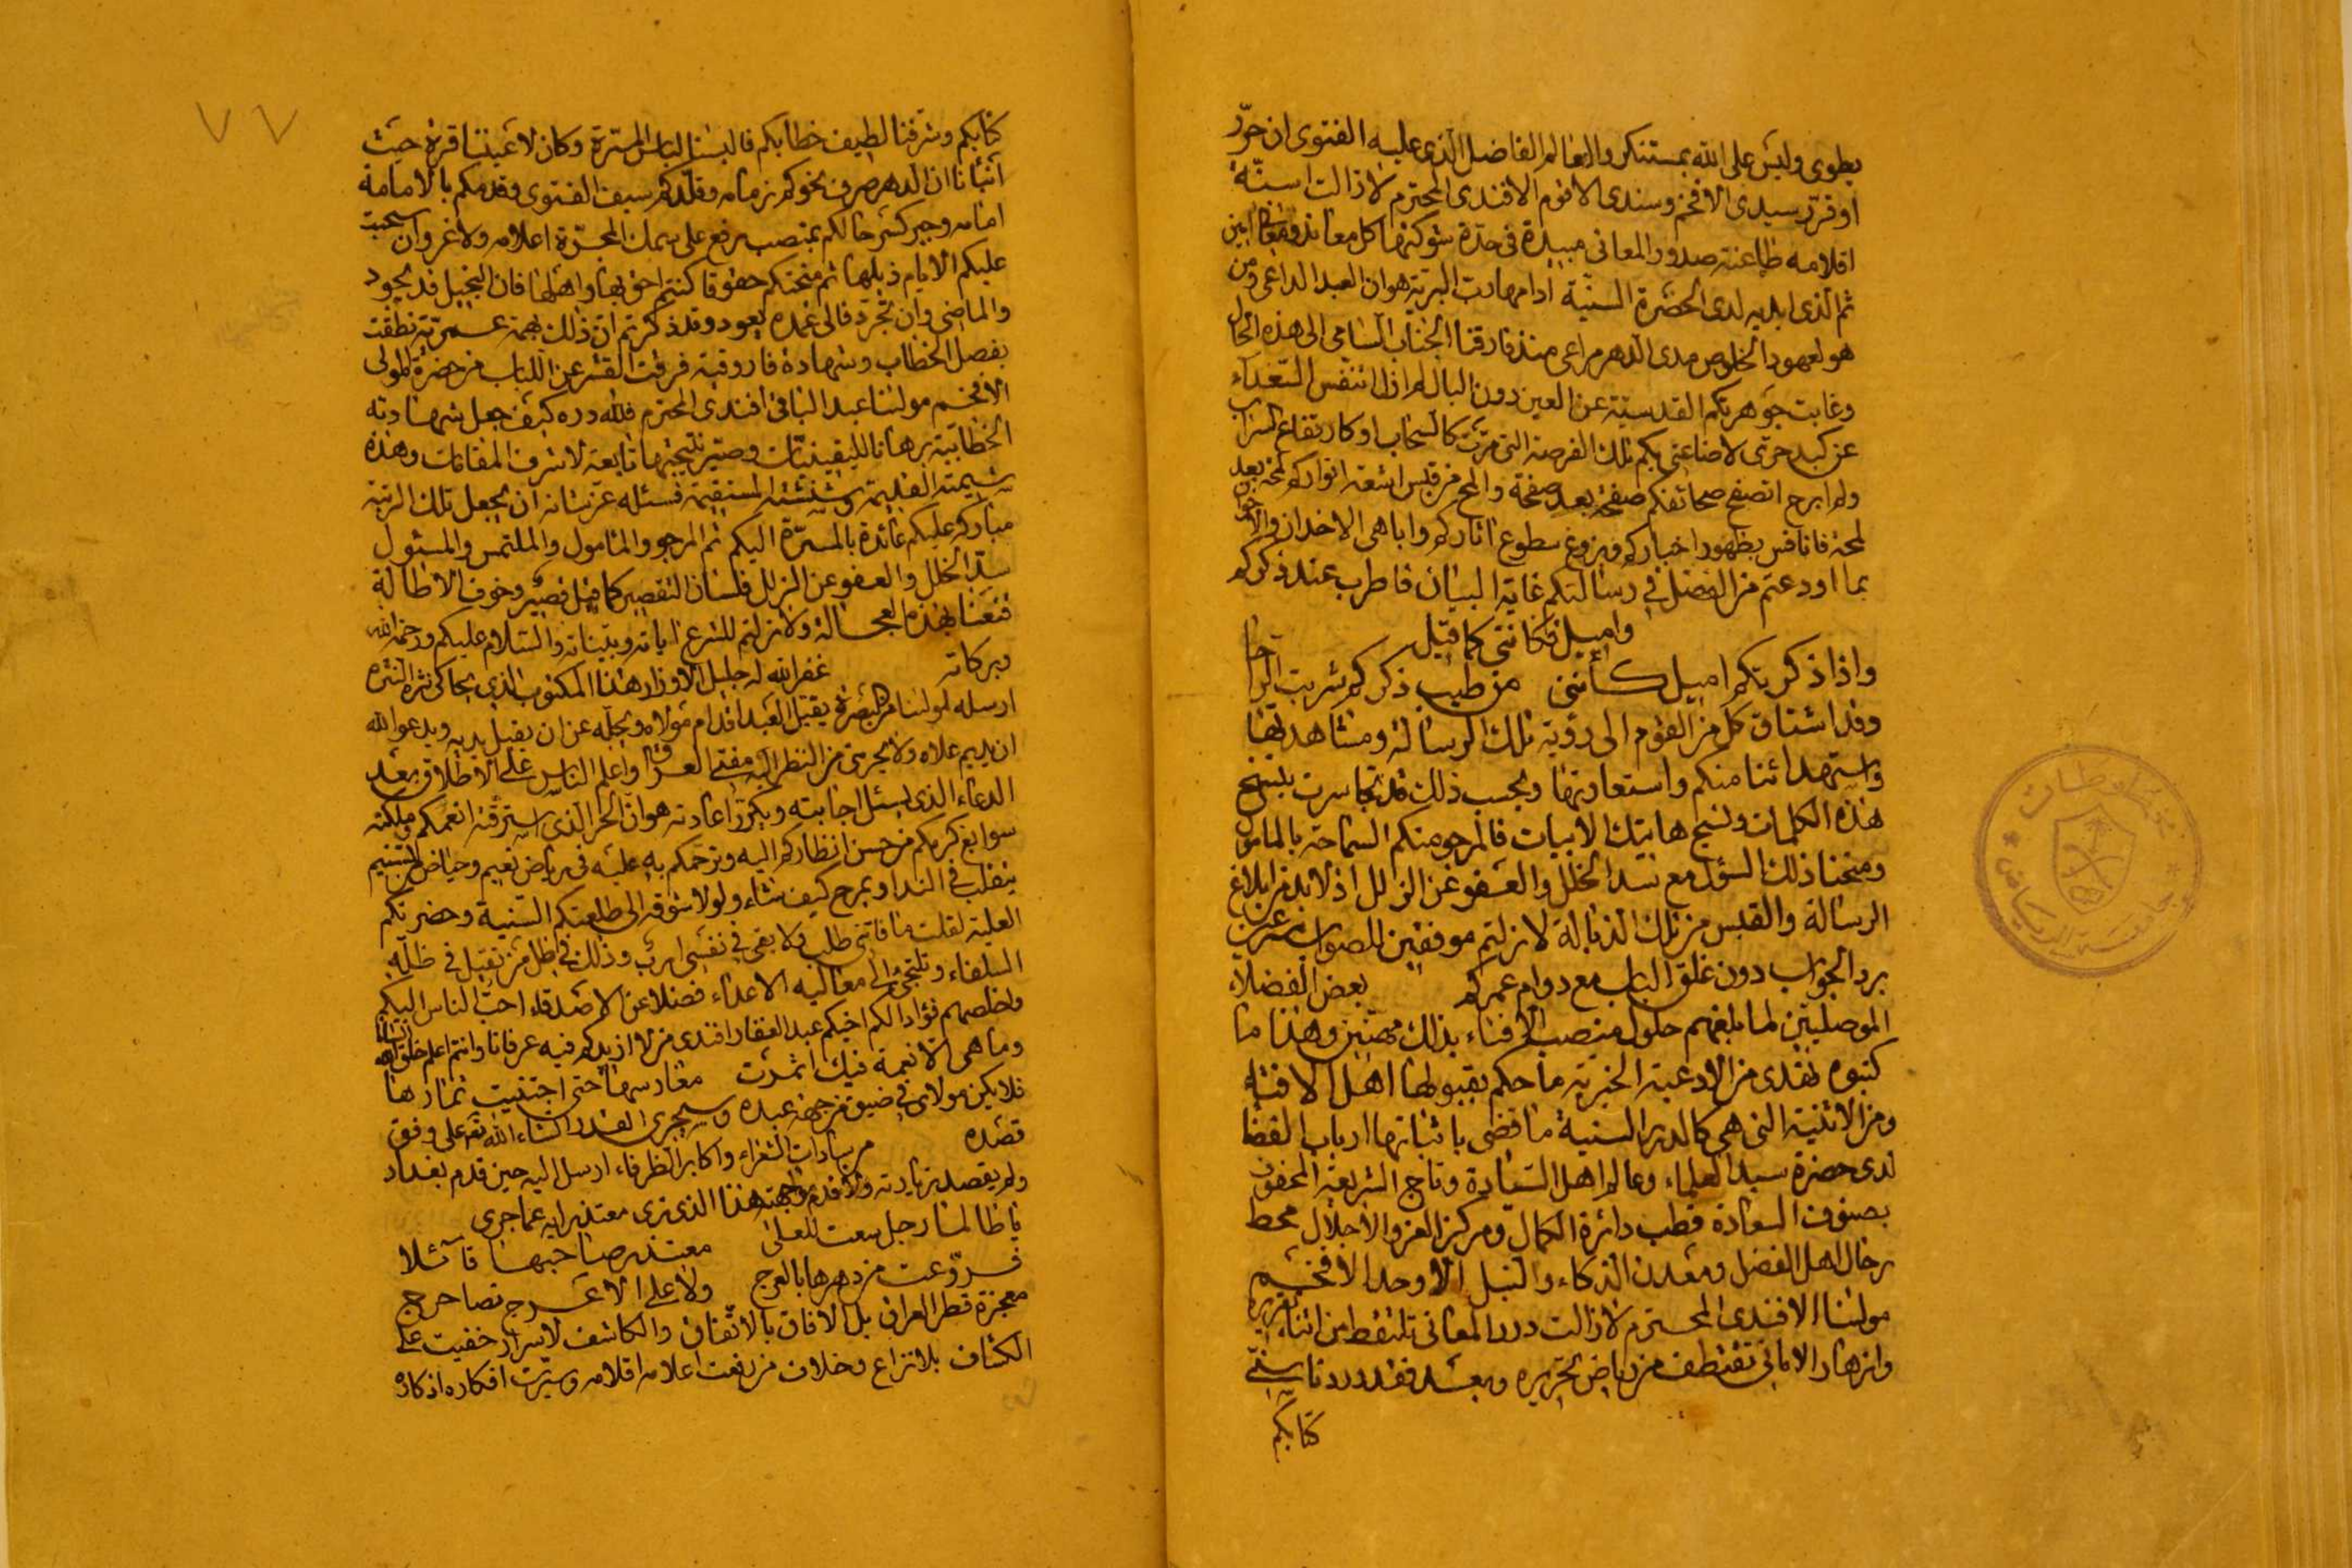 يطوى وليس على الله بمستنكر والعالم الفاضل الذى عليه الفتوى ان حرّر
او قرّر سيدى الافخم وسندى الاقوم الافندى المحترم لا زالت اسنّة
اقلامه طاعنة صدور المعانى مبيدة فى حدّة شوكتها كل معاند
ثم الذى ابديه لدى الحضرة السنيّة ادامها رب البريّة هو ان العبد الداعى ومن
هو لعهود الخلوص مدى الدهر مراعى منذ فارقنا الجناب السامى الى هذه الحال
وغابت جوهرتكم القدسيّة عن العين دون البال لم ازل اتنفس الصّعداء
عن كبد حرّى لاضاعتى بكم تلك الفرصة التى مرّت كالسحاب او كارتفاع السراب
ولم ابرح اتصفح صحائفكم صفحة بعد صفحة والمح من قبس اشعة انواركم لمحة بعد
لمحة فانافس بظهور اخباركم وبزوغ سطوع اثاركم واباهى الاخدان والاخوان
بما اودعتم من الفضل فى رسالتكم غاية البيان فاطرب عند ذكركم
واميل فكاننى كما قيل
واذا ذكرتكم اميل كأننى من طيب ذكركم شربت الراحا
وقد اشتاق كل من القوم الى رؤية تلك الرسالة ومشاهدتها
واستهدائنا منكم واستعارتها وبحسب ذلك قد تجاسرت بنسخ
هذه الكلمات ونسج هاتيك الابيات فالمرجو منكم السماحة بالمامول
ومنحنا ذلك السؤل مع سد الخلل والعفو عن الزلل اذ لا بد من ابلاغ
الرسالة والقبس من تلك الذبالة لا زلتم موفقين للصواب
برد الجواب دون غلق الباب مع دوام عمركم بعض الفضلاء
الموصليين لما بلغهم حلول منصب الافتاء بذلك مهنّين وهذا ما
كتبوه نهدى من الادعية الخيرية ما حكم بقبولها اهل الافتاء
ومن الاثنية التى هى كالدرر السنية ما قضى باثباتها ارباب القضا
لدى حضرة سيد العلماء وعالم اهل السّادة وتاج الشريعة المحفوف
بصنوف السعادة قطب دائرة الكمال ومركز العز والاجلال محط
رحال اهل الفضل ومعدن الذكاء والنبل الاوحد الافخم
مولينا الافندى المحترم لا زالت درر المعانى تلتقط من اثناء تقريره
وازهار الامانى تقتطف من رياض تحريره وبعد فقد ورد نا سنىّ
كتابكم
٧٧
كتابكم وشرّفنا لطيف خطابكم فالبسنا لباس المسّرة وكان لاعيننا قرة حيث
أنبأنا ان الدهر صرف نحوكم زمامه وقلّدكم سيف الفتوى وقدمكم بالامامة
امامه وجبر كسر حالكم بمنصب رفع على سمك المجرّة اعلامه ولا غرو ان سحبت
عليكم الايام ذيلها ثم منحتكم حقوقا كنتم احق بها واهلها فان البخيل قد يجود
والماضى وان تجرّد فالى غمده يعود وقد ذكرتم انّ ذلك بهمة عمريّة نطقت
بفصل الخطاب وشهادة فاروقية فرقت القشر عن اللباب من حضرة المولى
الافخم مولينا عبد الباقى افندى المحترم فلله دره كيف جعل شهادته
الخطابيّة برهانا لليقينيّات وصيّر نتيجتها تابعة لاشرف المقامات وهذه
شيمته القديمة وشنشنته المستقيمة فنسئله عزّ شانه ان يجعل تلك الرتبة
مباركة عليكم عائدة بالمسرّة اليكم ثم المرجو والمامول والملتمس والمسئول
سدّ الخلل والعفو عن الزلل فلسان التقصير كما قيل قصير وخوف الاطالة
قنعنا بهذه العجالة ولا زلتم للشرع اياته وبيّناته والسّلام عليكم ورحمة الله
وبركاته غفر الله له جليل الاوزار هذا المكتوب الذى يحاكى نثره النثره
ارسله لمولينا من البصرة يقبل العبد اقدام مولاه ويجلّه عن ان يقبل يديه ويدعو الله
ان يديم علاه ولا يحرمنى من النظر اليه مفتى العراق واعلم الناس على الاطلاق بعد
الدعاء الذى يسئل اجابته ويكرّر اعادته هو ان الحر الذى استرقته انعمكم وملكته
سوابغ كرمكم من حسن انظاركم اليه وترحمكم به عليه فى رياض نعيم وحياض تسنيم
يتقلب فى الندا ويمرح كيف شاء ولولا شوقه الى طلعتكم السّنية وحضرتكم
العلية لقلت ما فاتنى طلب ولا بقى فى نفسى ارب وذلك فى ظل من تقيل فى ظلّه
السلفاء وتلتجئ الى معاليه الاعداء فضلا عن الاصدقاء احبّ الناس اليكم
واخلصهم فؤادا لكم اخيكم عبد الغفار افندى من لا ازيدكم فيه عرفانا وانتم اعلم خلق الله
وما هى الا نعمة فيك اثمرت مغارسها حتى اجتنيت ثمارها
فلا يكن مولاى فى ضيق من جهة عبده وسيجرى القدر انشاء الله تعه على وفق
قصده من سادات الشعراء واكابر الظرفاء ارسل اليه حين قدم بغداد
ولم يقصد زيارته هذا الذى ترى معتذرا به عما جرى
يا ظالما رجل سعت للعلى معتذر صاحبها قائلا
قد روّعت من دهرها بالعرج ولا على الاعرج نصا حرج
معجزة قطر العراق بل الافاق بالاتفاق والكاشف لاسرار خفيت على
الكشاف بلا نزاع وخلاف من رفعت اعلامه اقلامه وسيّرت افكاره اذكاره